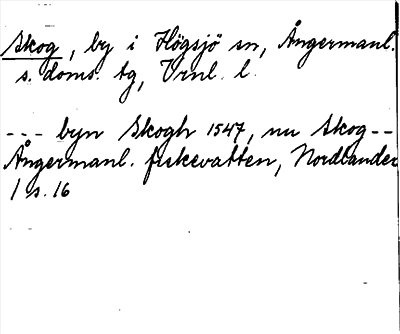 Skog, by i Högsjö sn, Ångermanl.
s. doms. tg, Vrnl. l.
--- byn Skogh 1547, nu Skog --
Ångermanl. fiskevatten, Nordlander
1 s. 16